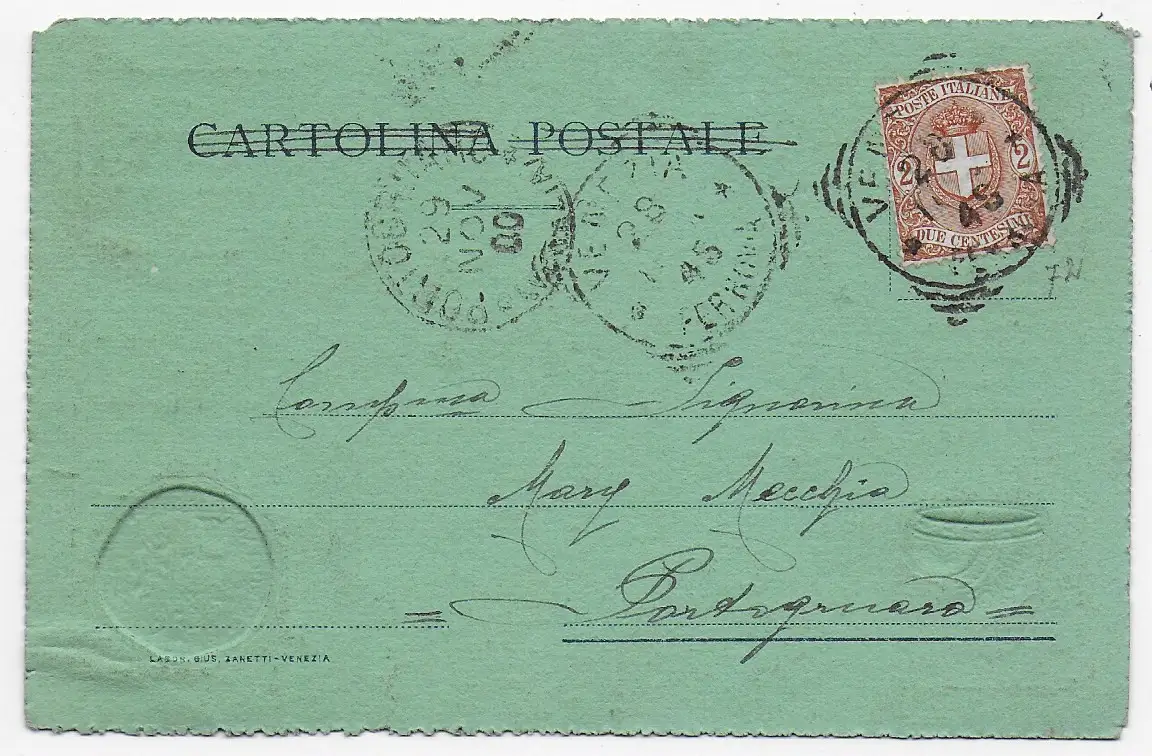 CARTOLINA POSTALE
POSTE ITALIANE
2 2
DUE CENTESIMI
PORTOGRUARO
29
NOV
00
VENEZIA
28
45
FERROVIA
7N
Signorina
Mary Mecchia
Portogruaro
LABOR. GIUS. ZANETTI-VENEZIA